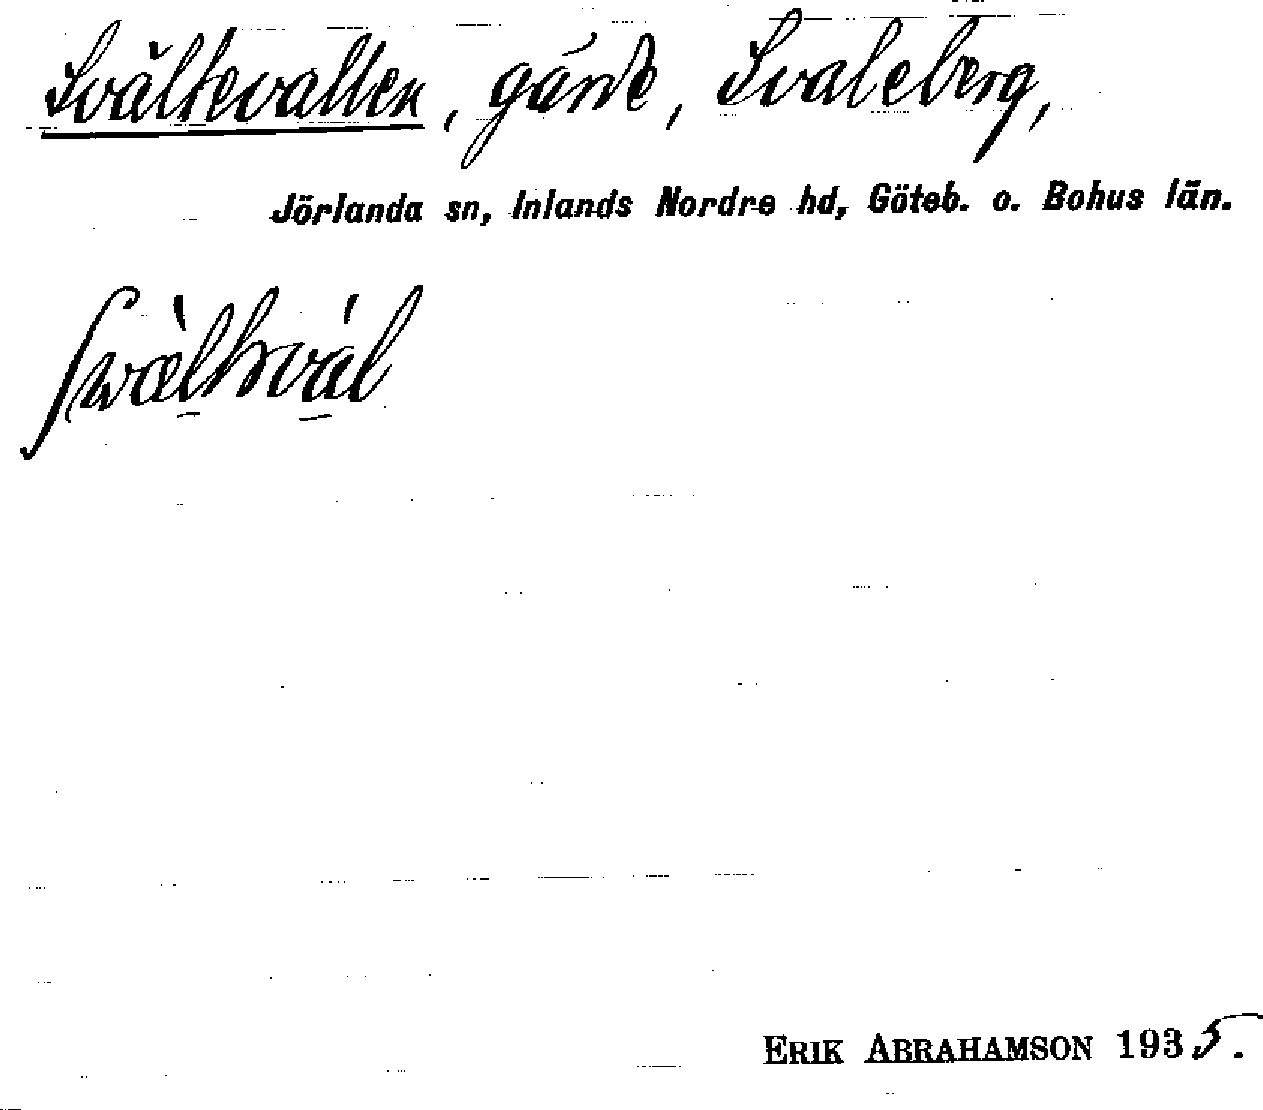 Svältevallen, gärde, Svaleberg,
Jörlanda sn, Inlands Nordre hd, Göteb. o. Bohus län.
ERIK ABRAHAMSON 1935.